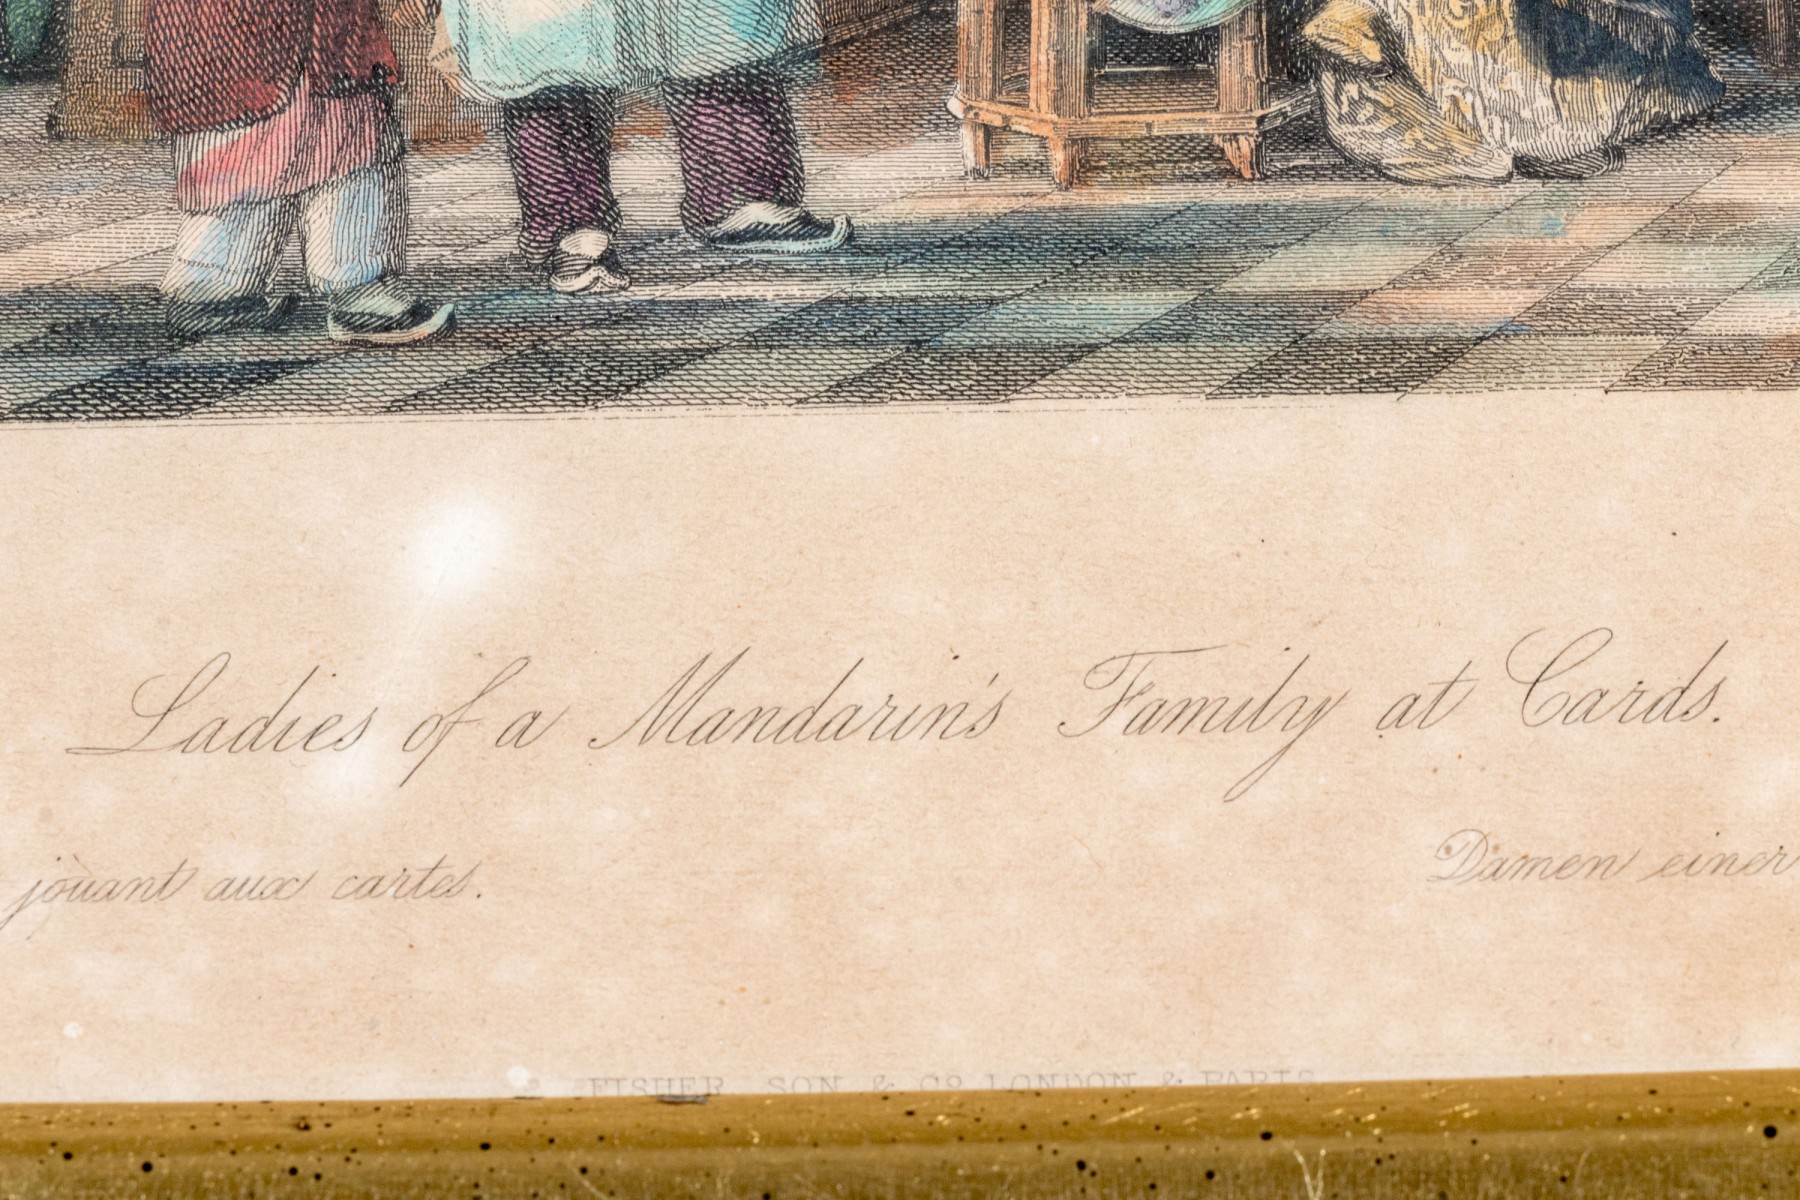 Ladies of a Mandarin's Family at Cards.
jouant aux cartes. Damen einer
FISHER, SON & Co. LONDON & PARIS